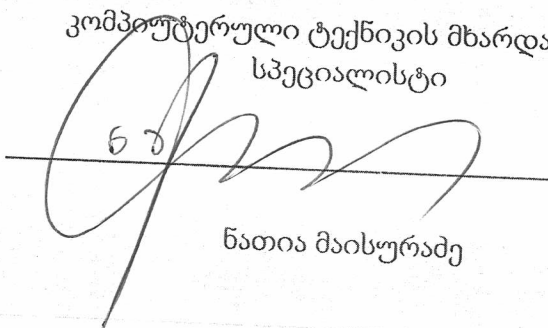 კომპიუტერული ტექნიკის მხარდა
სპეციალისტი
ნ მ
ნათია მაისურაძე